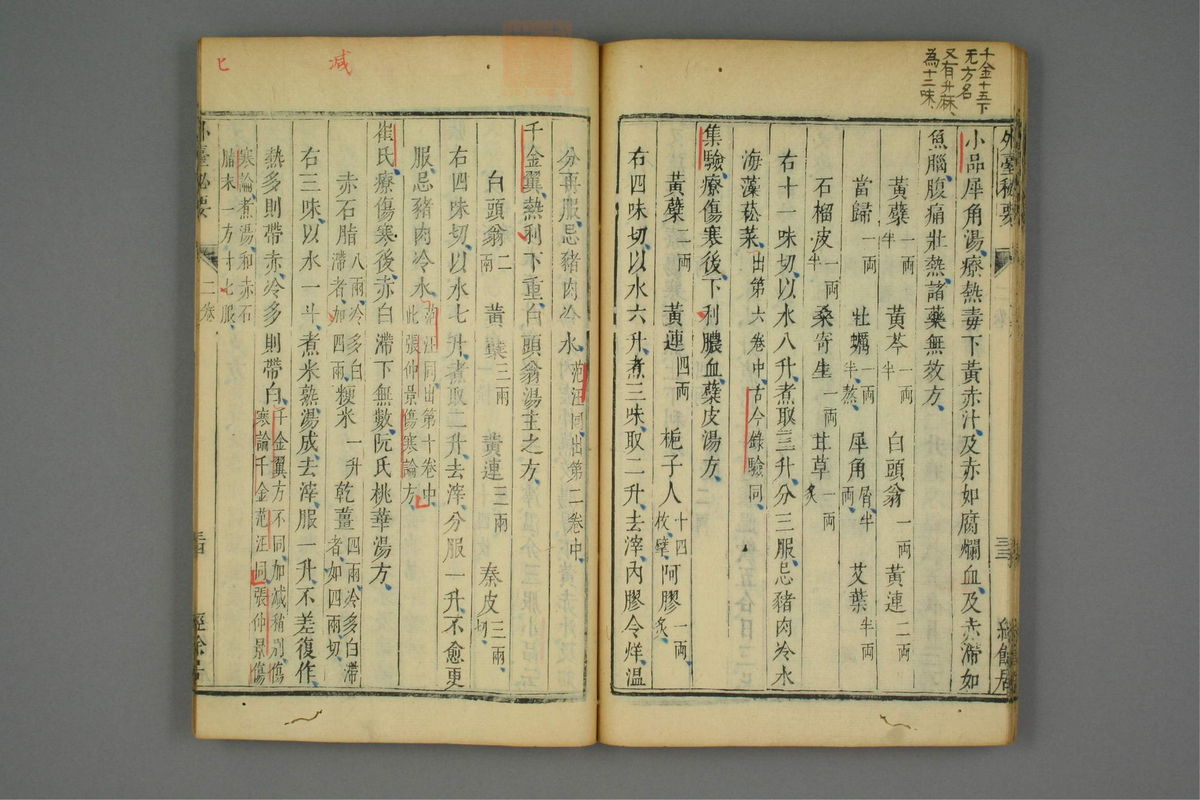 千金十五下
无方名
又有升麻
為十二味
外臺秘要
小品犀角湯療熱毒下黃赤汁及赤如腐爛血及赤滯如
魚腦腹痛壯熱諸藥無效方
黃蘗一兩半 黃芩一兩半 白頭翁一兩 黃連二兩
當歸一兩 牡蠣一兩半熬 犀角屑半兩 艾葉半兩
石榴皮一兩半 桑寄生一兩 甘草一兩炙
右十一味切以水八升煮取三升分三服忌豬肉冷水
海藻菘菜出第六卷中古今錄驗同
集驗療傷寒後下利膿血蘗皮湯方
黃蘗二兩 黃連四兩 梔子人十四枚擘 阿膠一兩炙
右四味切以水六升煮三味取二升去滓內膠令烊溫
分再服忌豬肉冷水范汪同出第二卷中
千金翼熱利下重白頭翁湯主之方
白頭翁二兩 黃蘗三兩 黃連三兩 秦皮三兩切
右四味切以水七升煮取二升去滓分服一升不愈更
服忌豬肉冷水范汪同出第十卷中此張仲景傷寒論方
減
崔氏療傷寒後赤白滯下無數阮氏桃華湯方
赤石脂八兩冷多白滯者加四兩 粳米一升 乾薑四兩冷多白滯者加四兩切
右三味以水一斗煮米熟湯成去滓服一升不差復作
熱多則帶赤冷多則帶白千金翼方不同加減稍別傷寒論千金范汪同張仲景傷
寒論煮湯和赤石脂末一方寸匕服
匕
外臺秘要
二卷
經餘居